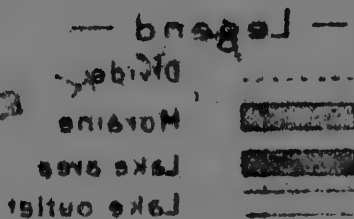 — Legend —
Divide
Moraine
Lake area
Lake outlet